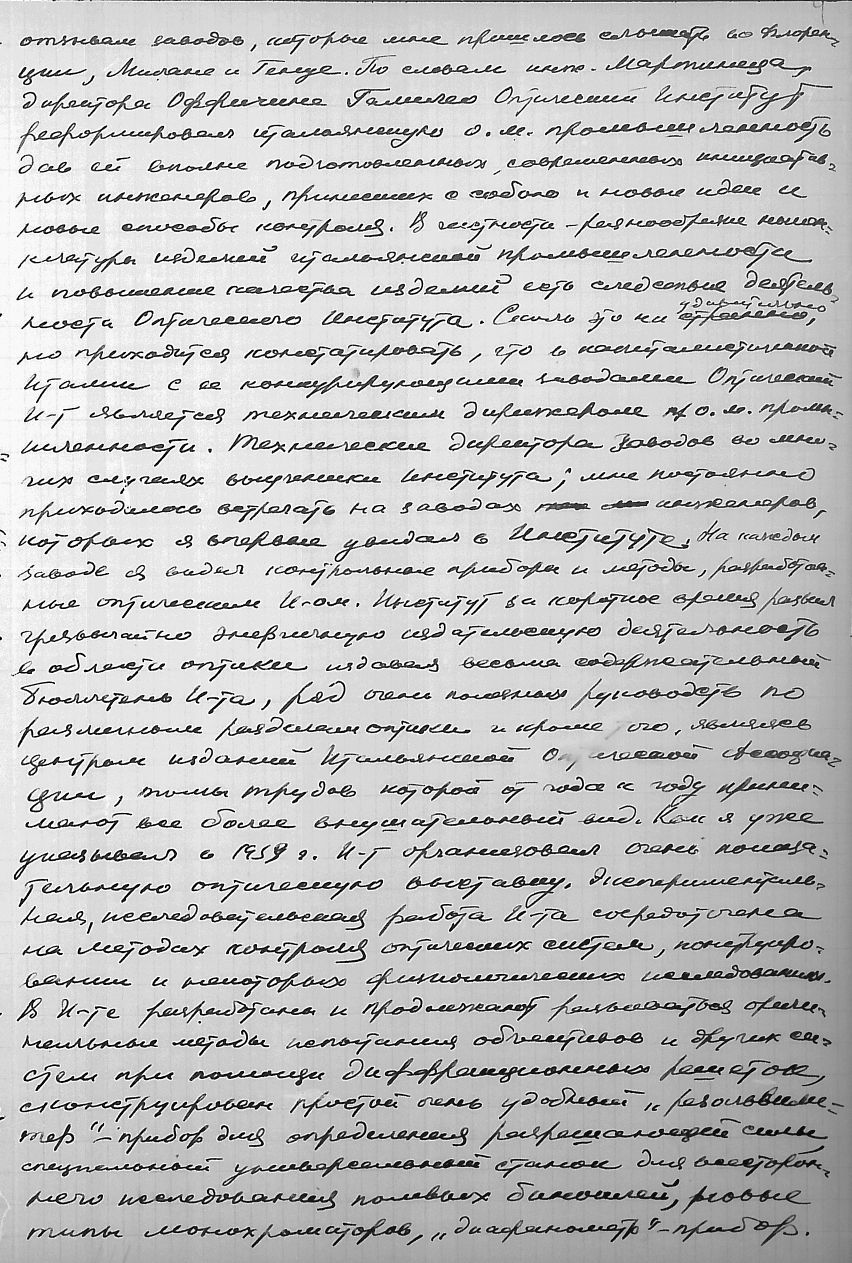 отзывам заводов, которые мне пришлось слышать во Флорен-
ции, Милане и Генуе. По словам инж. Мартинеца,
директора Оффичине Галилео Оптический Институт
реформировал итальянскую о.м. промышленность
дав ей вполне подготовленных, современных инициатив-
ных инженеров, принесших с собою и новые идеи и
новые способы контроля. В частности – разнообразие номен-
клатуры изделий итальянской промышленности
и повышение качества изделий есть следствие деятель-
ности Оптического Института. Сколь это ни странно, удивительно
но приходится констатировать, что в капиталистической
Италии с ее конкурирующими заводами Оптический
И-т является техническим дирижером о.м. промы-
шленности. Технические директора заводов во мно-
гих случаях выученики Института; мне постоянно
приходилось встречать на заводах инженеров,
которых я впервые увидал в Институте. На каждом
заводе я видел контрольные приборы и методы, разработан-
ные оптическим И-ом. Институт за короткое время развил
чрезвычайно энергичную издательскую деятельность
в области оптики издавая весьма содержательный
бюллетень И-та, ряд очень полезных руководств по
различным разделам оптики и кроме того, являясь
центром изданий Итальянской Оптической Ассоциа-
ции, томы трудов которой от года к году прини-
мают все более внушательный вид. Как я уже
указывал в 1939 г. И-т организовал очень показа-
тельную оптическую выставку. Эксперименталь-
ная, исследовательская работа И-та сосредоточена
на методах контроля оптических систем, конструиро-
вании и некоторых физиологических исследованиях.
В И-те разработаны и продолжают развиваться ориги-
нальные методы испытания объективов и других си-
стем при помощи диффракционных решеток,
сконструирован простой очень удобный „резольвиме-
тер" – прибор для определения разрешающей силы,
специальный универсальный станок для всесторон-
него исследования полевых биноклей, новые
типы монохроматоров, „диафанометр" – прибор.